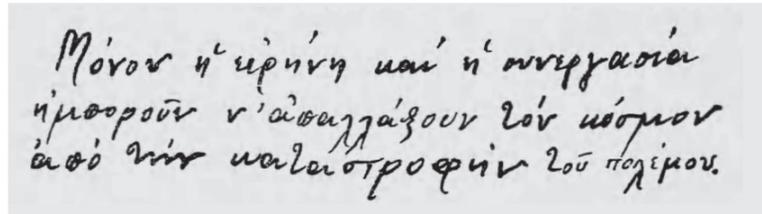 Μόνον ἡ εἰρήνη καί ἡ συνεργασία
ἡμποροῦν ν' ἀπαλλάξουν τόν κόσμον
ἀπό τήν καταστροφήν τοῦ πολέμου.